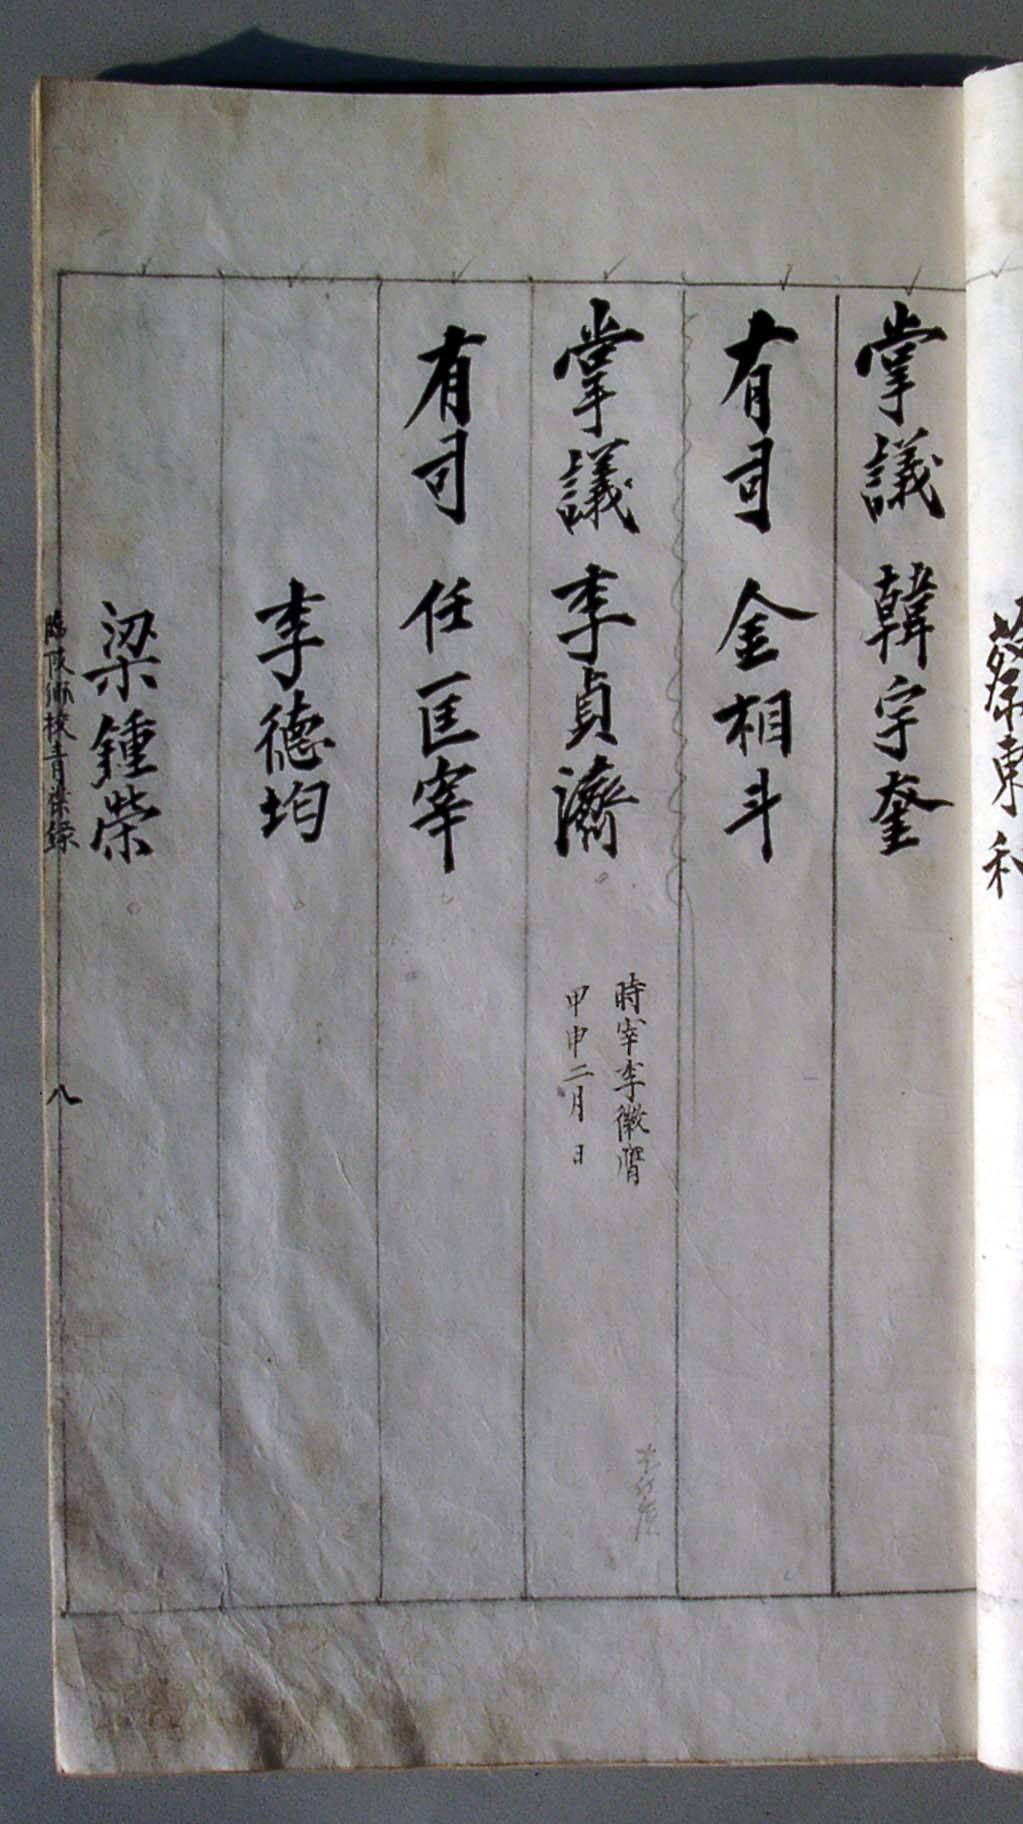 蔡東和
掌議 韓宇奎
有司 金相斗
掌議 李貞濟
時宰李徽
甲申二月 日
有司 任匡宰
李德均
梁鍾榮
臨陂鄕校靑衿錄
八